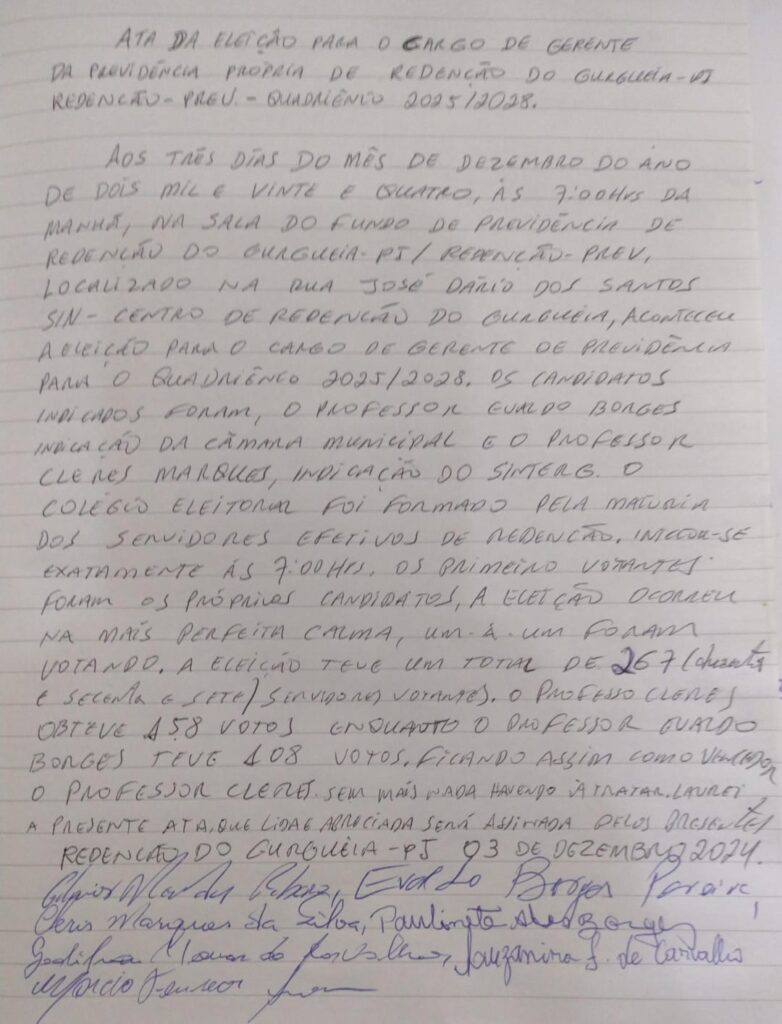 ATA DA ELEIÇÃO PARA O CARGO DE GERENTE
DA PREVIDÊNCIA PRÓPRIA DE REDENÇÃO DO GURGUEIA-PI
REDENÇÃO-PREV. - QUADRIÊNCO 2025/2028.
AOS TRÊS DIAS DO MÊS DE DEZEMBRO DO ANO
DE DOIS MIL E VINTE E QUATRO, ÀS 7:00HRS DA
MANHÃ, NA SALA DO FUNDO DE PREVIDÊNCIA DE
REDENÇÃO DO GURGUEIA-PI/ REDENÇÃO-PREV,
LOCALIZADO NA RUA JOSÉ DÁRIO DOS SANTOS
S/N - CENTRO DE REDENÇÃO DO GURGUÉIA, ACONTECEU
A ELEIÇÃO PARA O CARGO DE GERENTE DE PREVIDÊNCIA
PARA O QUADRIÊNCO 2025/2028. OS CANDIDATOS
INDICADOS FORAM, O PROFESSOR EVALDO BORGES
INDICAÇÃO DA CÂMARA MUNICIPAL E O PROFESSOR
CLERES MARQUES, INDICAÇÃO DO SINTERG. O
COLÉGIO ELEITORAL FOI FORMADO PELA MAIORIA
DOS SERVIDORES EFETIVOS DE REDENÇÃO. INICIOU-SE
EXATAMENTE ÀS 7:00HRS. OS PRIMEIRO VOTANTES
FORAM OS PRÓPRIOS CANDIDATOS, A ELEIÇÃO OCORREU
NA MAIS PERFEITA CALMA, UM-A-UM FORAM
VOTANDO. A ELEIÇÃO TEVE UM TOTAL DE 267 (duzenta
E SECENTA E SETE) SERVIDORES VOTANTES. O PROFESSO CLERES
OBTEVE 158 VOTOS ENQUANTO O PROFESSOR EVALDO
BORGES TEVE 108 VOTOS. FICANDO ASSIM COMO VENCEDOR
O PROFESSOR CLERES. SEM MAIS NADA HAVENDO À TRATAR. LAVREI
A PRESENTE ATA, QUE LIDA E APROCIADA SERÁ ASSINADA PELOS PRESENTES
REDENÇÃO DO GURGUÉIA-PI 03 DE DEZEMBRO 2024.
Evaldo Borges Pereira,
Marques da Silva, Paulineta Borges
de Carvalho